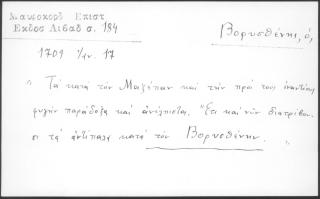 Μαυροκορδ Επιστ
Εκδοσ Λιβαδ σ. 184
Βορυσθένης, ὁ,
1709 Ἰαν. 17
" Τὰ κατὰ τὸν Μαζέπαν καὶ τὴν πρὸ τοὺς ἐναντίους
φυγὴν παράδοξα καὶ ἀνέλπιστα. Ἔτι καὶ νῦν διατρίβου-
σι τὰ ἀντίπαλα κατὰ τὸν Βορυσθένην. "